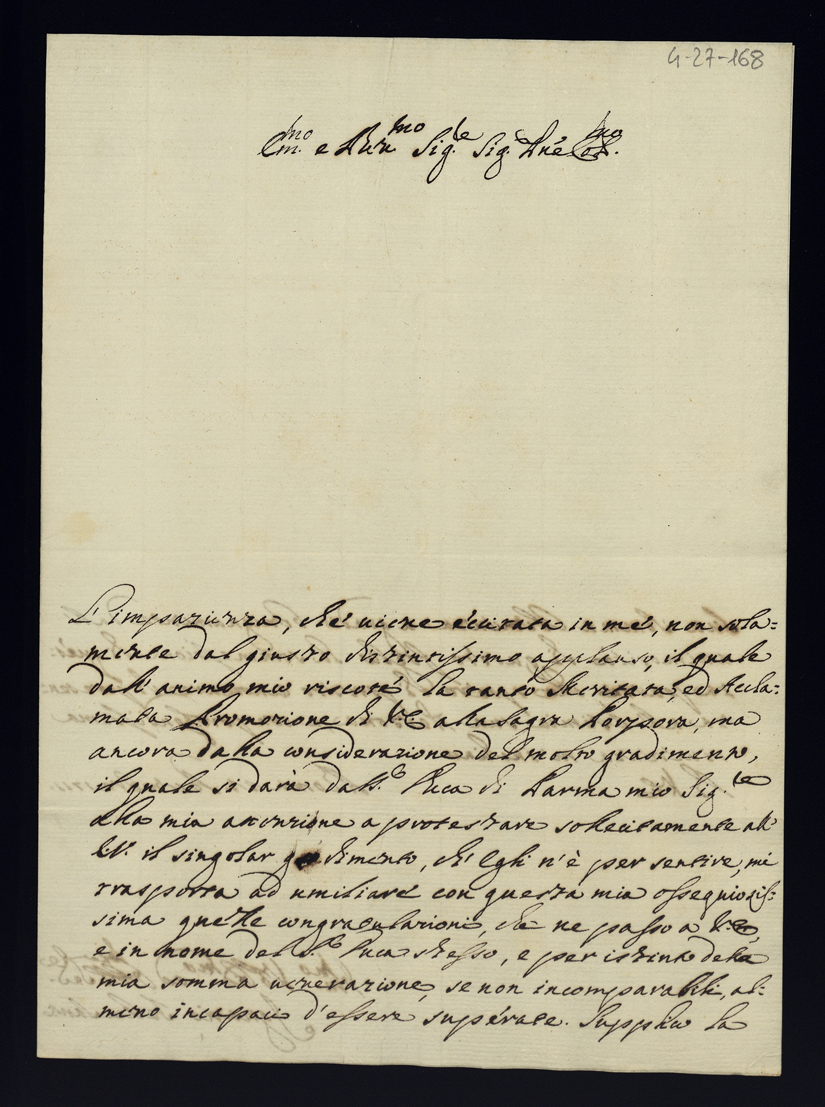 4-27-168
Em.mo e Rev.mo Sig.re Sig. Pñe Col.mo
L'impazienza, che viene eccitata in me, non sola=
mente dal giusto distintissimo applauso, il quale
dall'animo mio riscote la tanto Meritata, ed Accla=
mata Promozione di V.E. alla Sagra Porpora, ma
ancora dalla considerazione del molto gradimento,
il quale si darà dal S. Duca di Parma mio Sig.re
alla mia attenzione a protestare sollecitamente all'
E.V. il singolar godimento, ch'Egli n'è per sentire, mi
trasporta ad umiliare con questa mia ossequiosis=
sima quelle congratulazioni, che ne passo a V.E.,
e in nome del S. Duca stesso, e per istinto della
mia somma venerazione, se non incomparabili, al=
meno incapaci d'essere superate. Supplico la